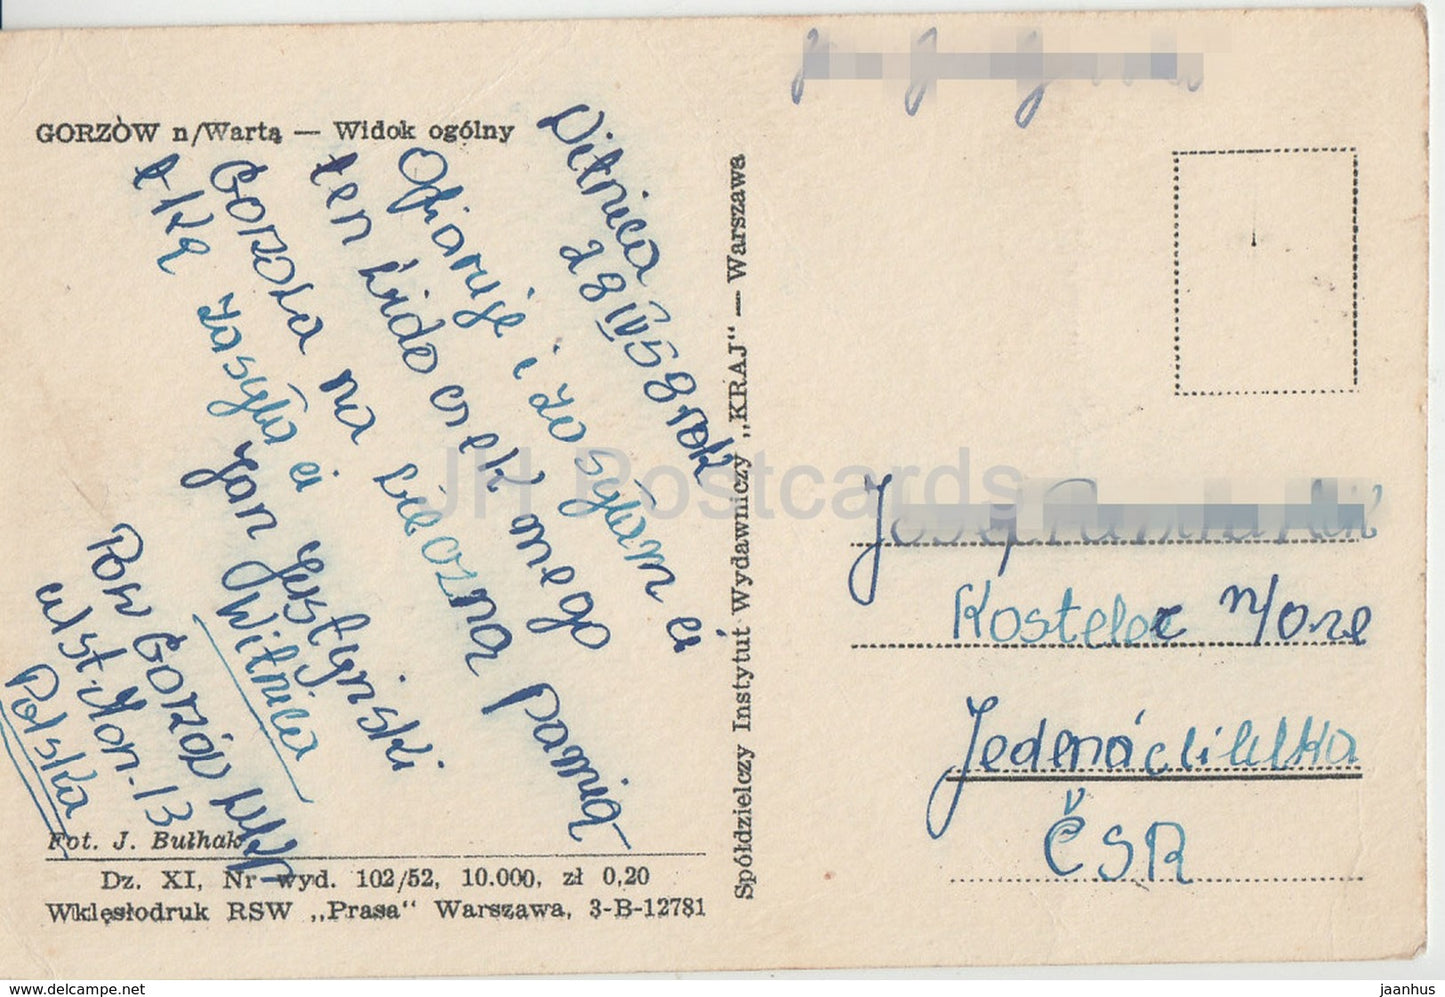 GORZÒW n/Wartą — Widok ogólny
Witnica
28 IV 58 rok
Ofiaruję i zasyłam ci
ten widoczek mego
Gorzowa na wieczną pamią
tkę zasyła ci
Jan Justyński
Witnica
Pow Gorzów Wlkp
Polska
Fot. J. Bułhak
Dz. XI, Nr wyd. 102/52, 10.000, zł 0,20
Wklęsłodruk RSW „Prasa“ Warszawa, 3-B-12781
Spółdzielczy Instytut Wydawniczy „KRAJ“ — Warszawa
JH Postcards
Josef
Kostelec n/
ČSR
www.delcampe.net
jaanhus